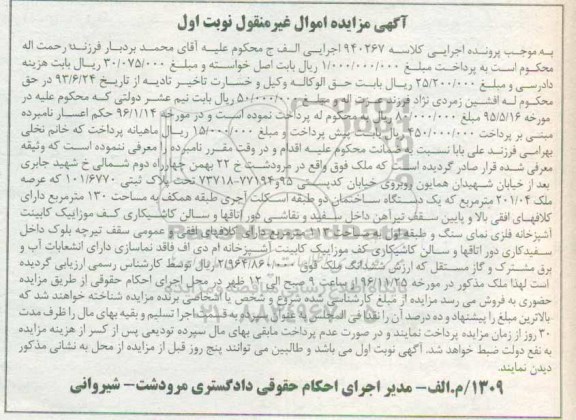 آگهی مزایده اموال غیرمنقول نوبت اول
به موجب پرونده اجرایی کلاسه ۹۴۰۲۶۷ اجرایی الف ج محکوم علیه آقای محمد بردبار فرزند: رحمت اله
محکوم است به پرداخت مبلغ ۱/۰۰۰/۰۰۰/۰۰۰ ریال بابت اصل خواسته و مبلغ ۳۰/۰۷۵/۰۰۰ ریال بابت هزینه
دادرسی و مبلغ ۲۵/۲۰۰/۰۰۰ ریال بابت حق الوکاله وکیل و خسارت تاخیر تادیه از تاریخ ۹۳/۶/۲۴ در حق
محکوم له افشین زمردی نژاد فرزند عزت اله و مبلغ ۵۰/۰۰۰/۰۰۰ ریال بابت نیم عشر دولتی که محکوم علیه در
مورخه ۹۵/۵/۱۶ مبلغ ۸۰/۰۰۰/۰۰۰ ریال به محکوم له پرداخت نموده است و در مورخه ۹۶/۱/۱۴ حکم اعسار نامبرده
مبنی بر پرداخت ۴۵۰/۰۰۰/۰۰۰ ریال بابت پیش پرداخت و مبلغ ۱۵/۰۰۰/۰۰۰ ریال ماهیانه پرداخت که خانم نخلی
بهرامی فرزند علی پابا نسبت به ضمانت محکوم علیه اقدام و در وقت مقرر نامبرده را معرفی ننموده است که وثیقه
معرفی شده قرار صادر گردیده است که ملک فوق واقع در مرودشت خ ۲۲ بهمن چهارراه دوم شمالی خ شهید جابری
بعد از خیابان شهیدان همایون روبروی خیابان کدپستی ۹۵و۷۷۱۹۴-۷۳۷۱۸ تحت پلاک ثبتی ۱۰۱/۶۷۷۰ که عرصه
ملک ۲۰۱/۰۴ مترمربع که یک دستگاه ساختمان دو طبقه اسکلت آجری طبقه همکف به مساحت ۱۳۰ مترمربع دارای
کلافهای افقی بالا و پایین سقف تیرآهن داخل سفید و نقاشی دور اتاقها و سالن کاشیکاری کف موزاییک کابینت
آشپزخانه فلزی نمای سنگ و طبقه اول به مساحت مترمربع دارای کلافهای افقی و عمومی سقف تیرچه بلوک داخل
سفیدکاری دور اتاقها و سالن کاشیکاری کف موزاییک کابینت آشپزخانه ام دی اف فاقد نماسازی دارای انشعابات آب و
برق مشترک و گاز مستقل که ارزش ششدانگ ملک فوق ۲/۹۶۴/۸۶۰/۰۰۰ ریال توسط کارشناس رسمی ارزیابی گردیده
است لهذا ملک مذکور در مورخه ۹۶/۱۱/۲۵ از ساعت ۹ صبح الی ۱۲ ظهر در محل اجرای احکام حقوقی از طریق مزایده
حضوری به فروش می رسد مزایده از مبلغ کارشناسی شده شروع و شخص یا اشخاصی برنده مزایده شناخته خواهند شد که
بالاترین مبلغ را پیشنهاد و ده درصد آن را نقدا فی المجلس به عنوان سپرده به قسمت اجرا تسلیم و بقیه بهای مال را ظرف مدت
۳۰ روز از زمان مزایده پرداخت نمایند و در صورت عدم پرداخت مابقی بهای مال سپرده تودیعی پس از کسر از هزینه مزایده
به نفع دولت ضبط خواهد شد. آگهی نوبت اول می باشد و طالبین می توانند پنج روز قبل از مزایده از محل به نشانی مذکور
دیدن نمایند.
۱۳۰۹/م.الف- مدیر اجرای احکام حقوقی دادگستری مرودشت- شیروانی